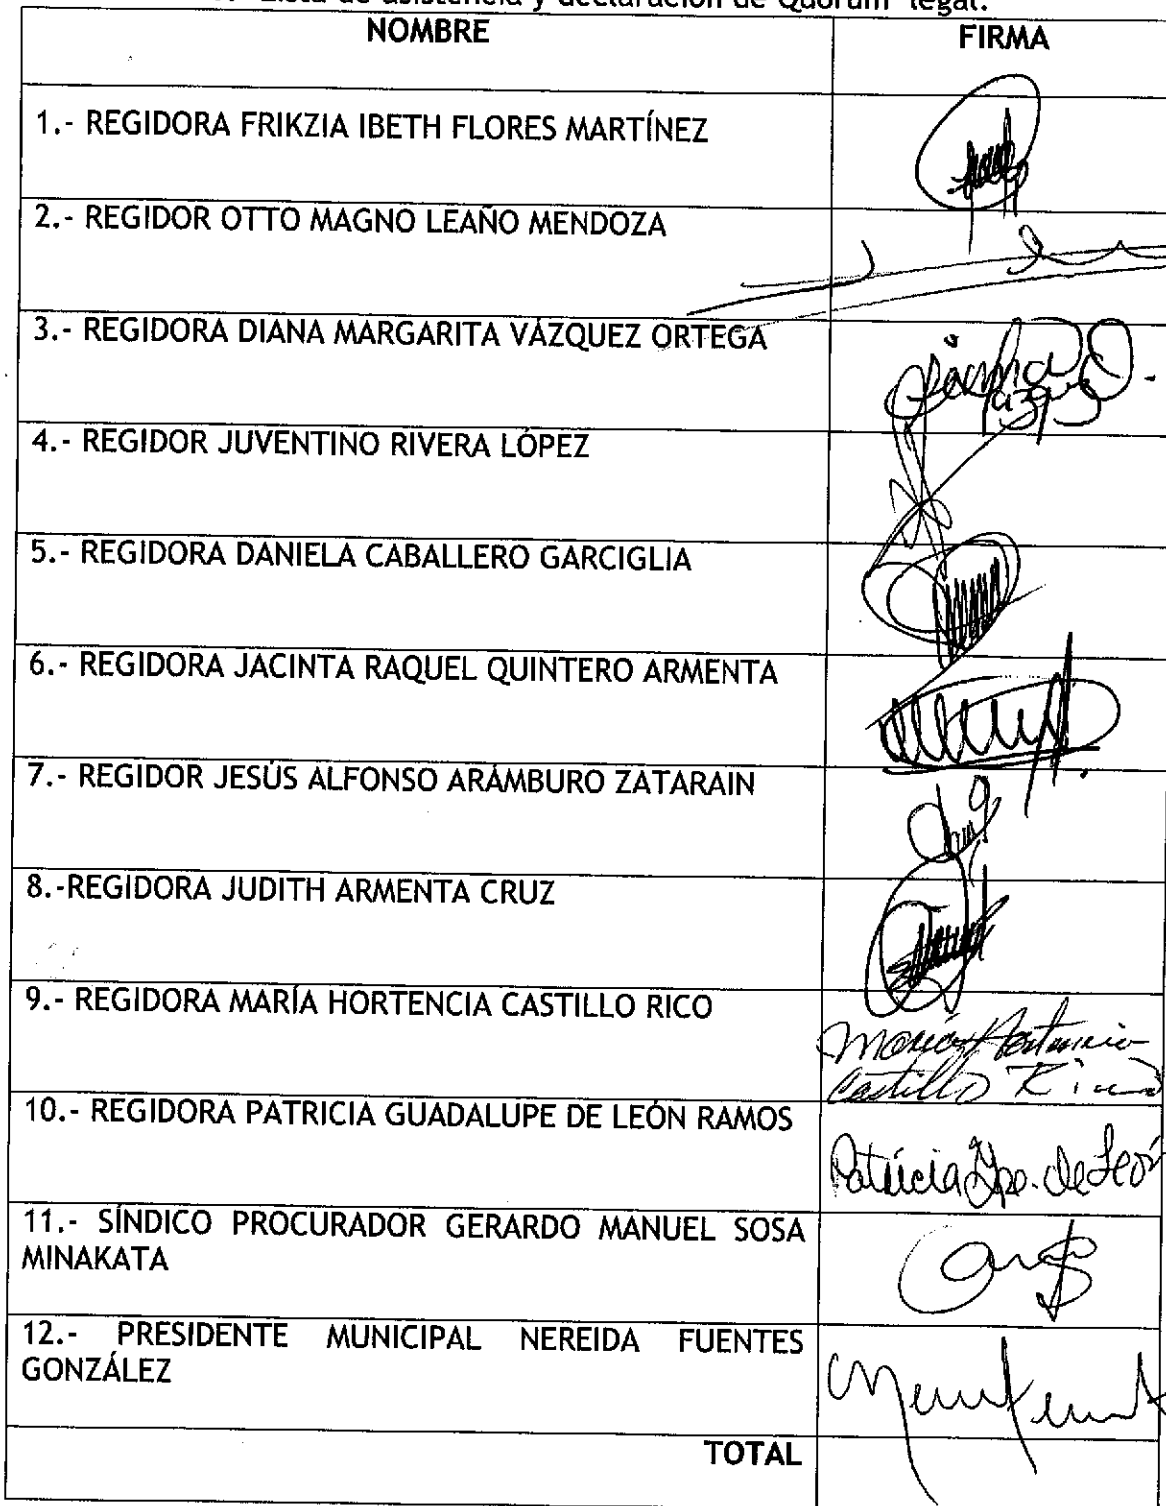 Lista de asistencia y declaración de Quórum legal.
NOMBRE FIRMA
1.- REGIDORA FRIKZIA IBETH FLORES MARTÍNEZ
2.- REGIDOR OTTO MAGNO LEAÑO MENDOZA
3.- REGIDORA DIANA MARGARITA VÁZQUEZ ORTEGA
4.- REGIDOR JUVENTINO RIVERA LÓPEZ
5.- REGIDORA DANIELA CABALLERO GARCIGLIA
6.- REGIDORA JACINTA RAQUEL QUINTERO ARMENTA
7.- REGIDOR JESÚS ALFONSO ARÁMBURO ZATARAIN
8.-REGIDORA JUDITH ARMENTA CRUZ
9.- REGIDORA MARÍA HORTENCIA CASTILLO RICO
María Hortencia
Castillo Rico
10.- REGIDORA PATRICIA GUADALUPE DE LEÓN RAMOS
Patricia Gpe. de León
11.- SÍNDICO PROCURADOR GERARDO MANUEL SOSA
MINAKATA
12.- PRESIDENTE MUNICIPAL NEREIDA FUENTES
GONZÁLEZ
TOTAL